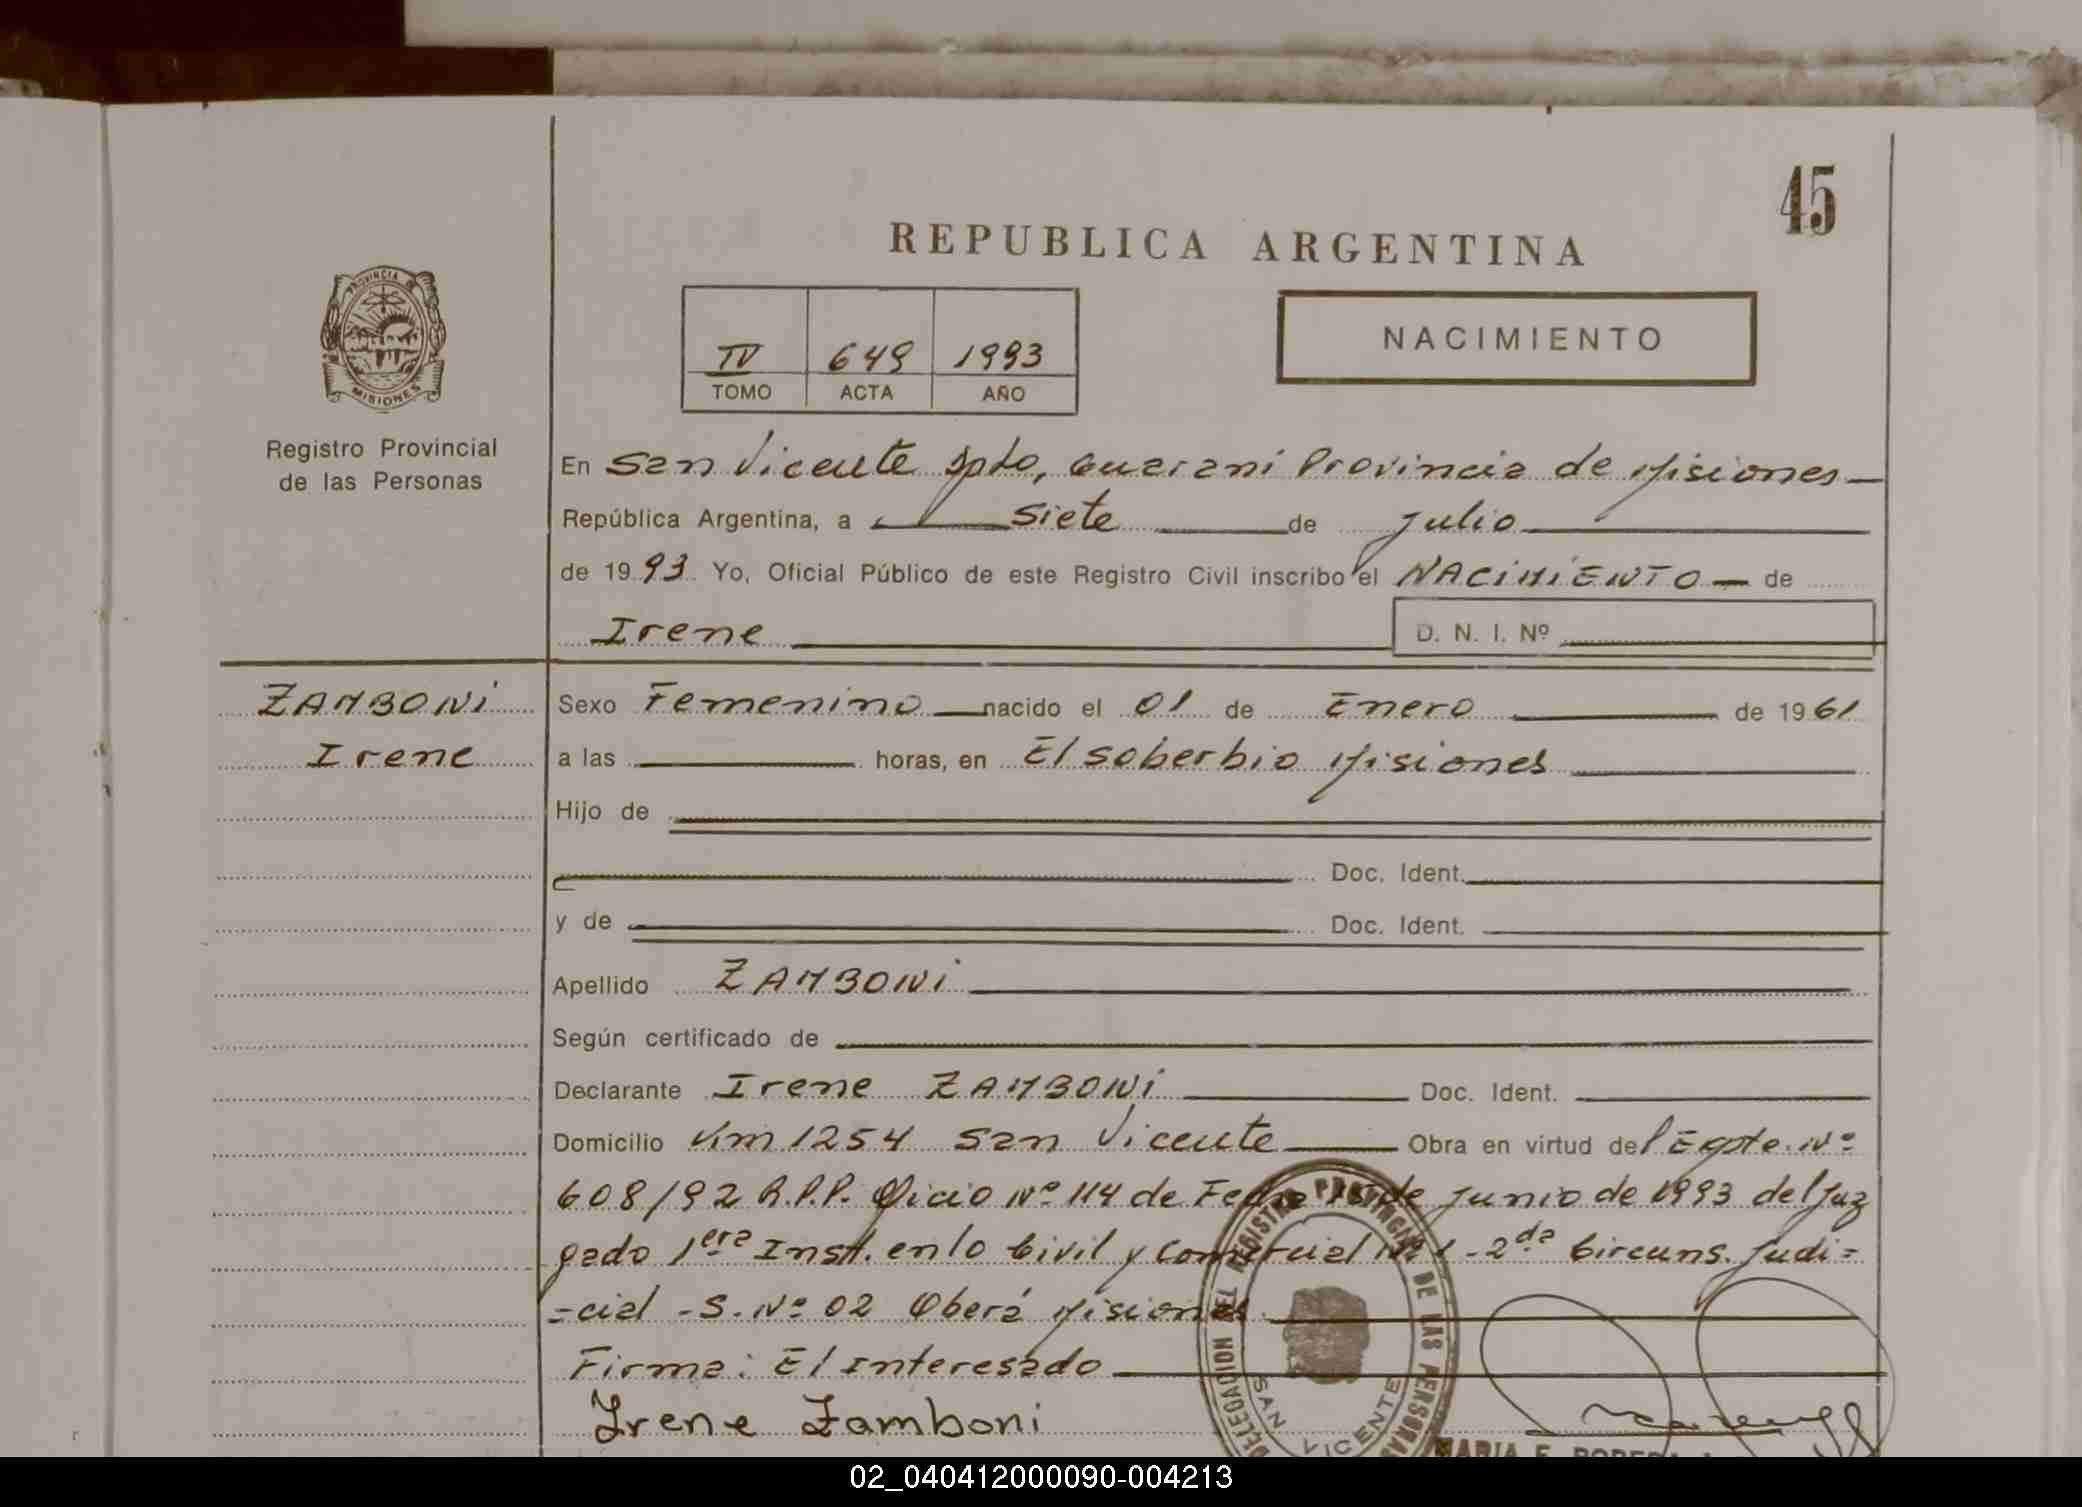 45
REPUBLICA ARGENTINA
PROVINCIA DE
MISIONES
Registro Provincial
de las Personas
IV 649 1993
TOMO ACTA AÑO
NACIMIENTO
En San Vicente Dpto, Guarani Provincia de Misiones
República Argentina, a Siete de Julio
de 1993 Yo, Oficial Público de este Registro Civil inscribo el NACIMIENTO de
Irene D. N. I. Nº
ZAMBONi
Irene
Sexo Femenino nacido el 01 de Enero de 1961
a las horas, en El Soberbio Misiones
Hijo de
Doc. Ident.
y de Doc. Ident.
Apellido ZAMBONi
Según certificado de
Declarante Irene ZAMBONi Doc. Ident.
Domicilio Km 1254 San Vicente Obra en virtud del Expte. Nº
608/92 R.P.P. Oficio Nº 114 de Fecha 15 de Junio de 1993 del Juz
gado 1era Inst. en lo Civil y Comercial Nº 1 - 2da Circuns. Judi=
=cial - S. Nº 02 Oberá Misiones
Firma: El Interesado
Irene Zamboni
DELEGACION DEL REGISTRO PROVINCIAL DE LAS PERSONAS
SAN VICENTE
MARIA E.
02_040412000090-004213